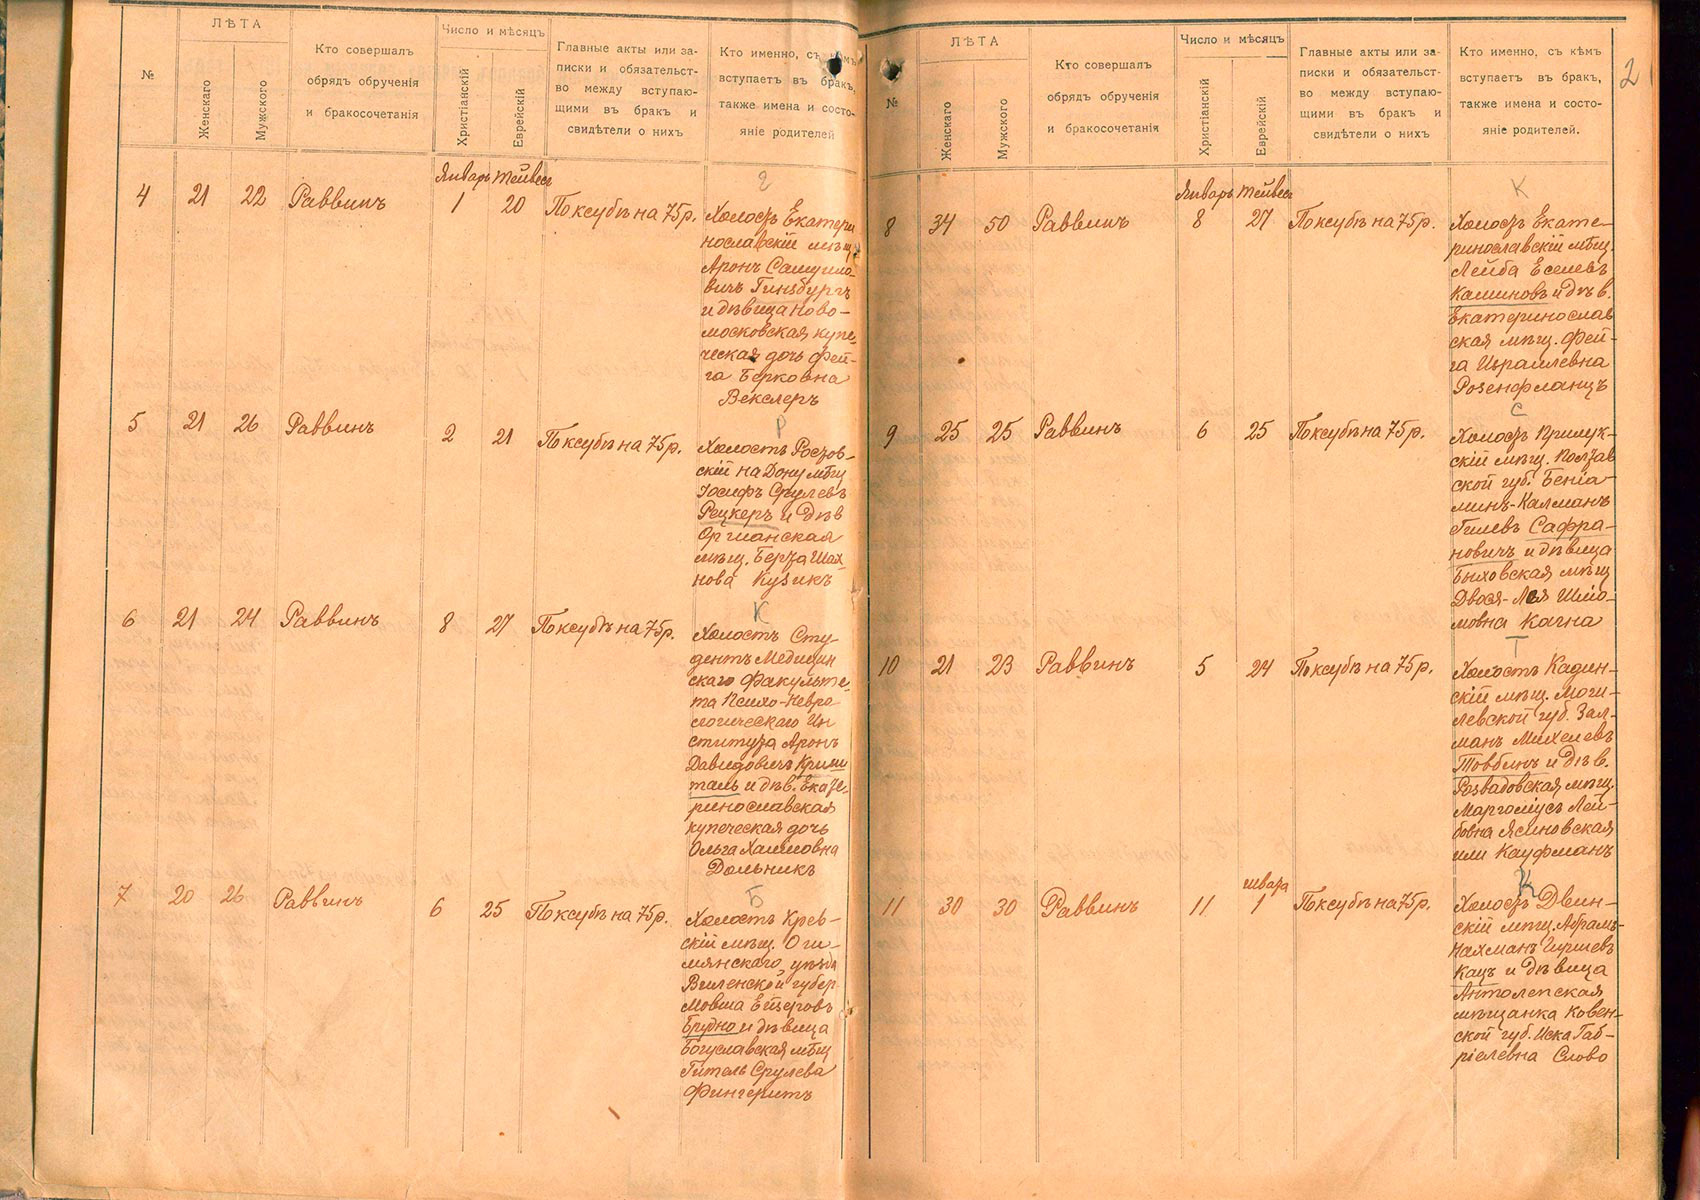 №
ЛѢТА
Женскаго
Мужского
Кто совершалъ
обрядъ обрученія
и бракосочетанія
Число и мѣсяцъ
Христіанскій
Еврейскій
Главные акты или за-
писки и обязательст-
во между вступаю-
щими въ бракъ и
свидѣтели о нихъ
Кто именно, съ кѣмъ
вступаетъ въ бракъ,
также имена и состо-
яніе родителей
4 21 22 Раввинъ
Январь Тейвесъ
1 20 По ксубѣ на 75 р.
Г
Холостъ Екатери
нославскій мѣщ.
Аронъ Самуило-
вичъ Гинзбургъ
и дѣвица Ново-
московская купе-
ческая дочь Фей-
га Берковна
Векслеръ
5 21 26 Раввинъ 2 21 По ксубѣ на 75 р.
Р
Холостъ Ростов-
скій на Дону мѣщ
Іосифъ Срулевъ
Рецкеръ и дѣв
Оргианская
мѣщ. Берта Шах
нова Кузикъ
6 21 24 Раввинъ 8 27 По ксубѣ на 75 р.
К
Холостъ Сту-
дентъ Медицин
скаго Факульте-
та Психо-Невро
логическаго Ин
ститута Аронъ
Давидовичъ Криш
таль и дѣв. Екате-
ринославская
купеческая дочь
Ольга Хаимовна
Дольникъ
7 20 26 Раввинъ 6 25 По ксубѣ на 75 р.
Б
Холостъ Крев-
скій мѣщ. Ошмянскаго уѣзда
Виленской губер
Мовша Етеровъ
Брудно и дѣвица
Богуславская мѣщ
Гитель Срулева
Фингеритъ
2
№
ЛѢТА
Женскаго
Мужского
Кто совершалъ
обрядъ обрученія
и бракосочетанія
Число и мѣсяцъ
Христіанскій
Еврейскій
Главные акты или за-
писки и обязательст-
во между вступаю-
щими въ бракъ и
свидѣтели о нихъ
Кто именно, съ кѣмъ
вступаетъ въ бракъ,
также имена и состо-
яніе родителей.
8 34 50 Раввинъ
Январь Тейвесъ
8 27 По ксубѣ на 75 р.
К
Холостъ Екате-
ринославскій мѣщ.
Лейба Еселевъ
Калиновъ и дѣв.
Екатеринослав
ская мѣщ. Фей-
га Израилевна
Розенфланцъ
9 25 25 Раввинъ 6 25 По ксубѣ на 75 р.
С
Холостъ Прилук-
скій мѣщ. Полтав
ской губ. Беніа-
минъ-Калманъ
Гилевъ Сафра-
новичъ и дѣвица
Быховская мѣщ
Двося-Лея Шлио-
мовна Качна
10 21 23 Раввинъ 5 24 По ксубѣ на 75 р.
Т
Холостъ Кадин-
скій мѣщ. Моги-
левской губ. Зал-
манъ Михелевъ
Товбинъ и дѣв.
Розвадовская мѣщ.
Марголіусъ Лей-
бовна Ясиновская
или Кауфманъ
11 30 30 Раввинъ 11
швата
1 По ксубѣ на 75 р.
К
Холостъ Двин-
скій мѣщ. Абрамъ-
Нахманъ Гиршевъ
Кацъ и дѣвица
Антолепская
мѣщанка Ковен-
ской губ. Иска Габ-
ріелевна Слово